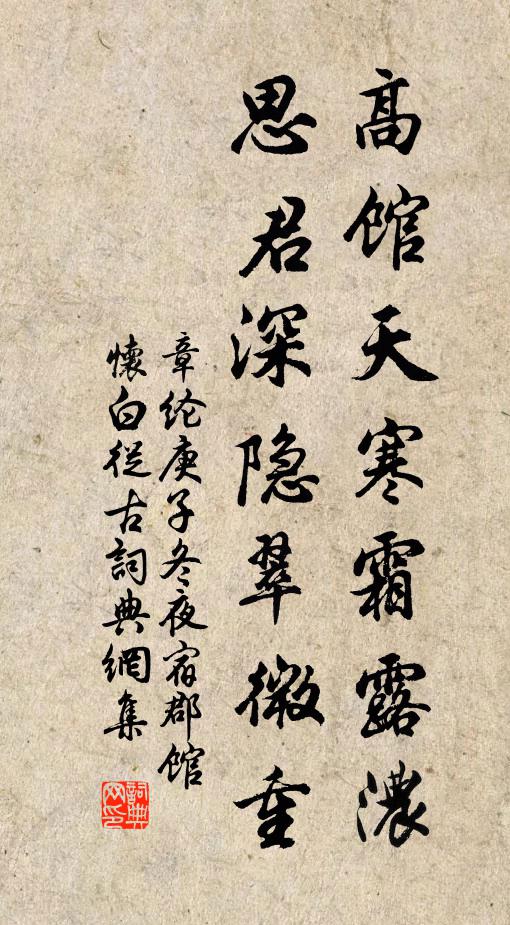 高馆天寒霜露濃
思君深隐翠微重
章纶庚子冬夜宿郡馆
懷白從古詞典網集
詞典网印